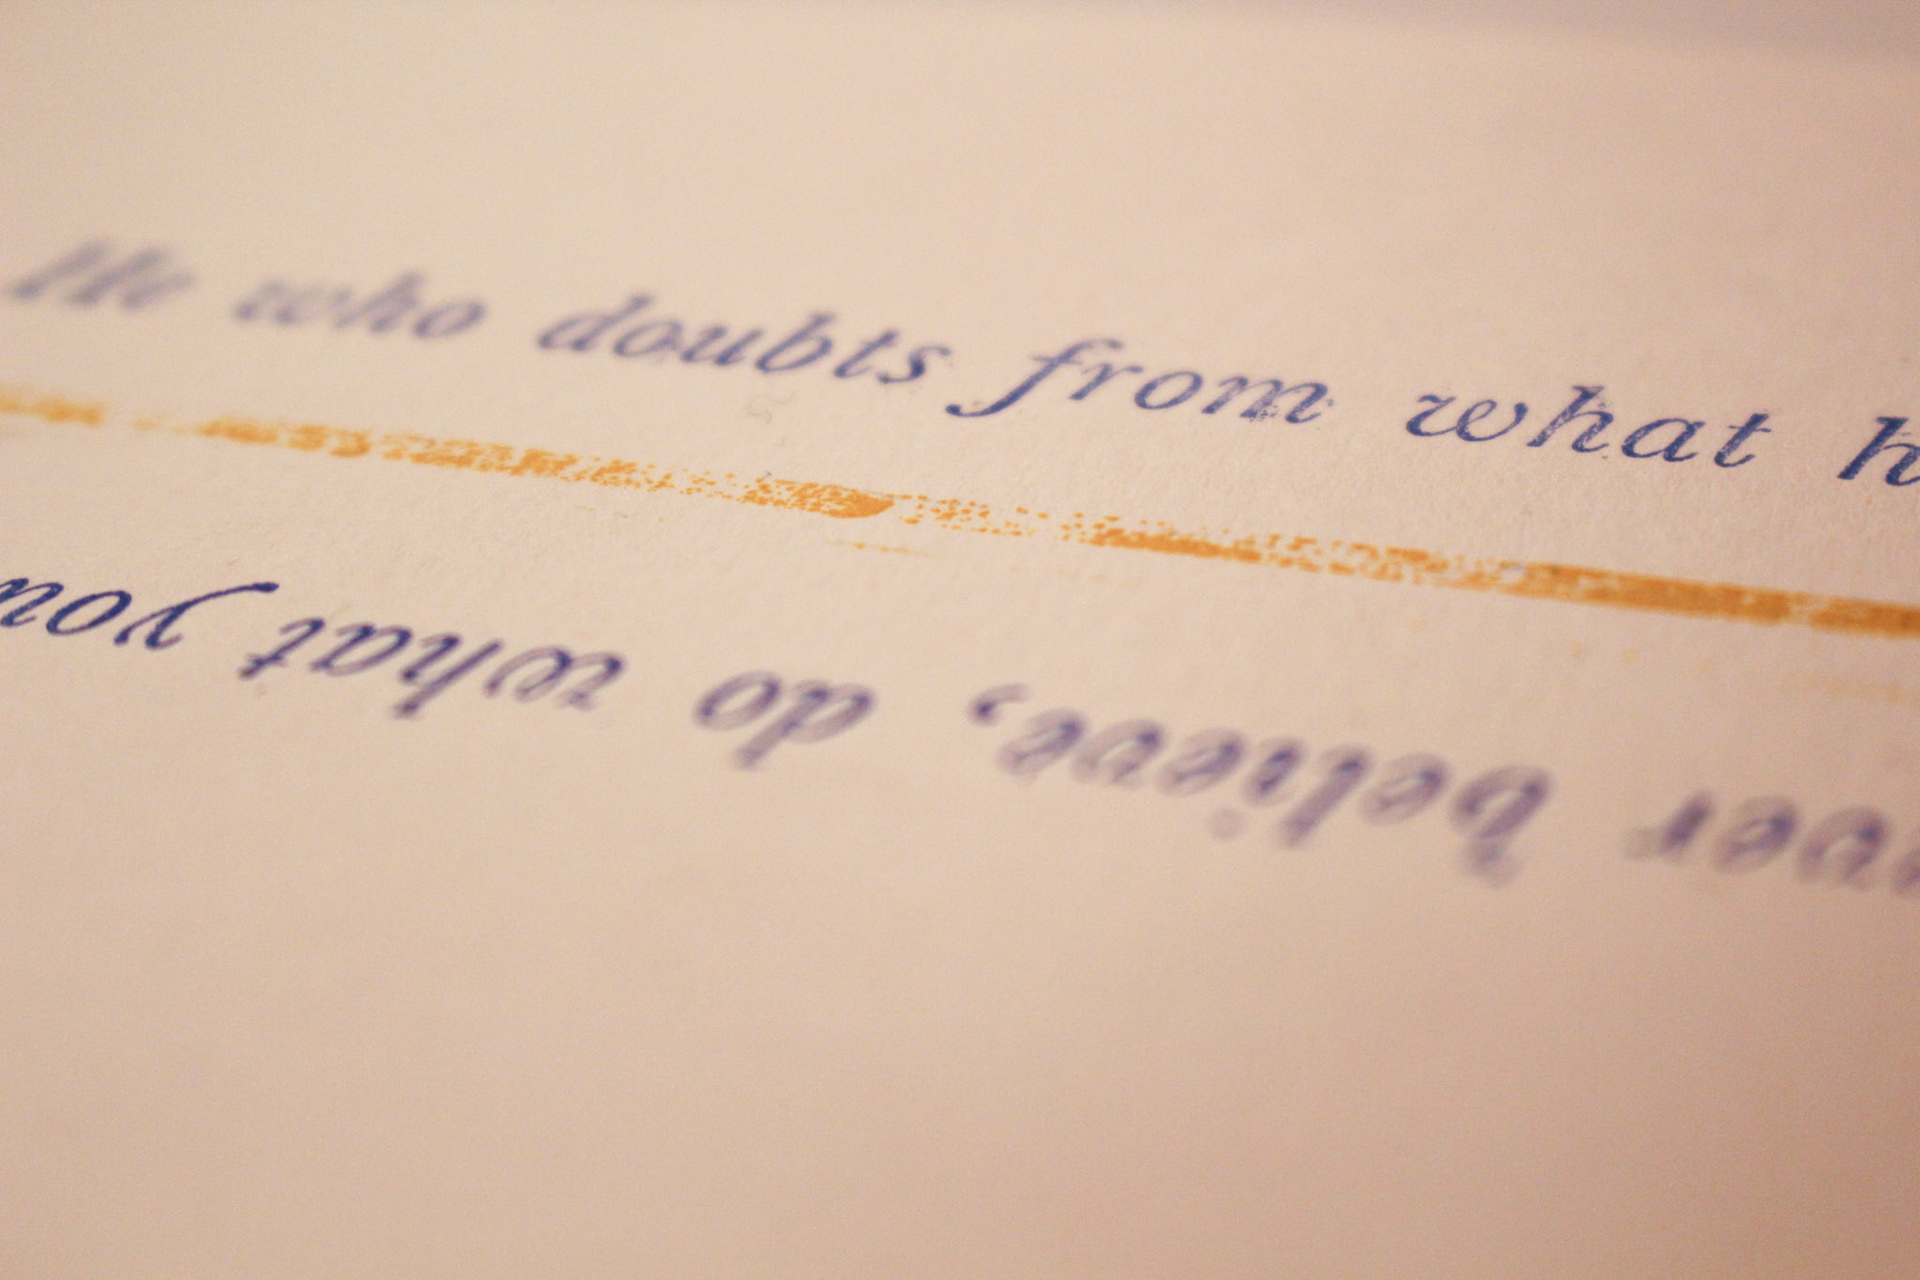 He who doubts from what h
ver believe, do what you